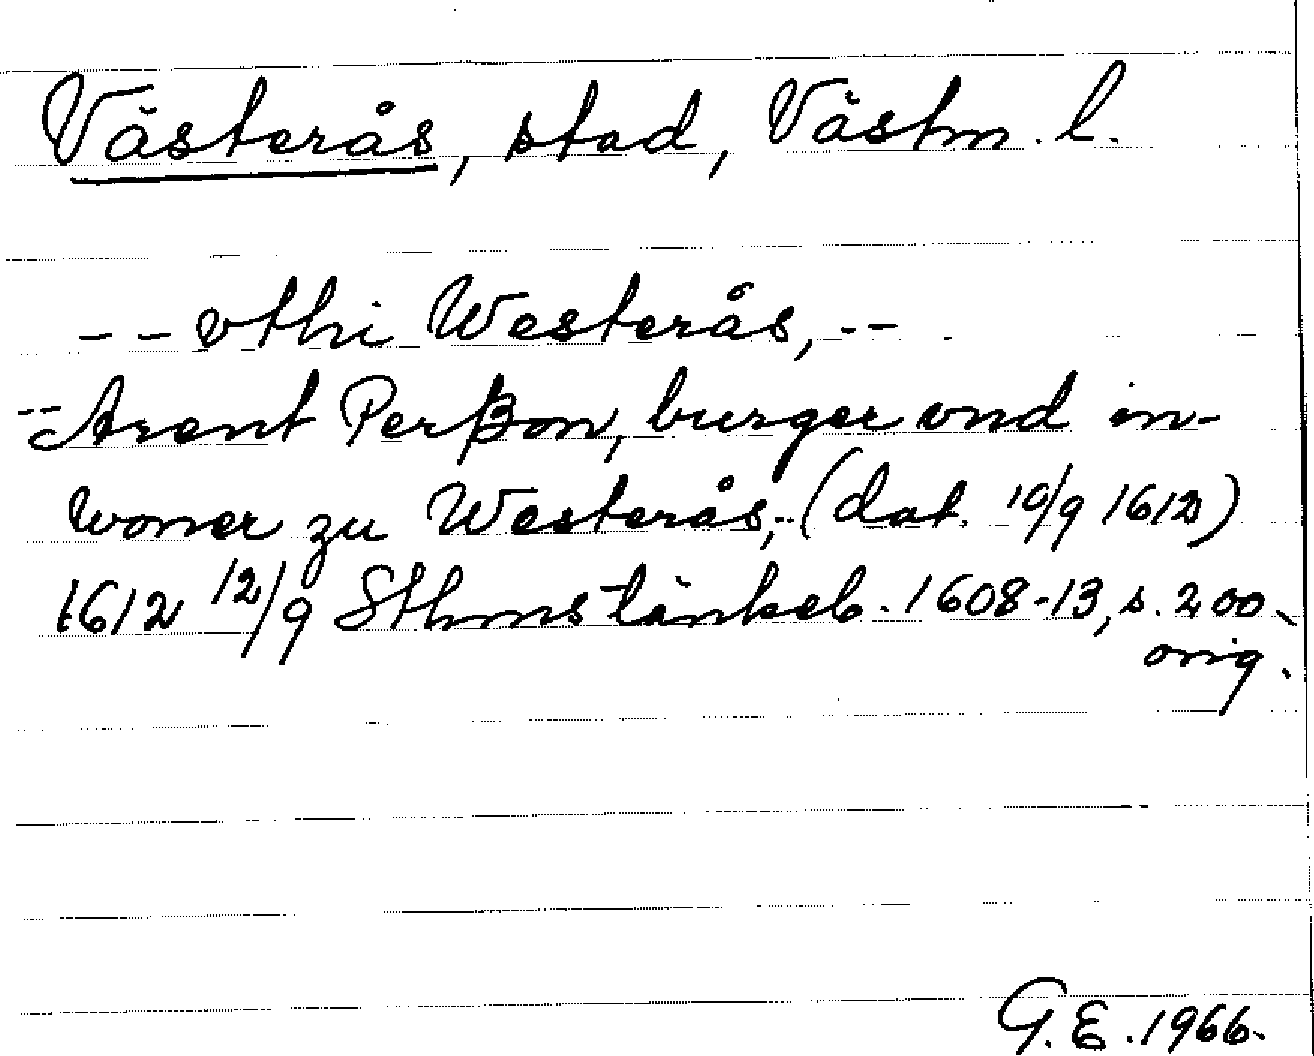 Västerås, stad, Västm. l.
-- vthi Westerås, --
-- Arent Perßon, burger vnd in-
woner zu Westerås, -- (dat. 10/9 1612)
1612 12/9 Sthms tänkeb. 1608-13, s. 200
orig.
G. E. 1966.